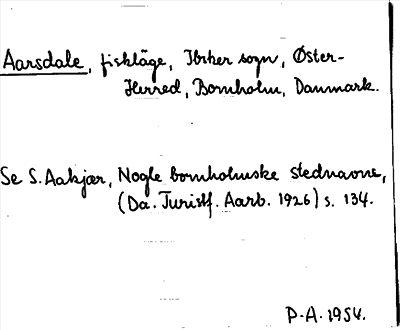 Aarsdale, fiskläge, Ibsker sogn, Øster-
Herred, Bornholm, Danmark.
Se S. Aakjær, Nogle bornholmske stednavne,
(Da. Turistf. Aarb. 1926) s. 134.
P-A. 1954.